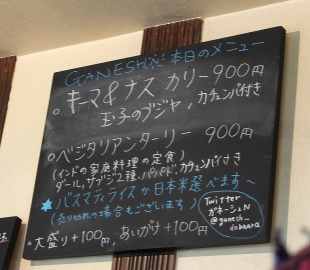 GANESH N 本日のメニュー
○キーマ&ナス カリー 900円
玉子のブジャ, カチュンバ付き
○ベジタリアンターリー 900円
(インドの家庭料理の定食)
ダール, サブジ2種, パパド, カチュンバ付き
★バスマティライスか日本米選べます〜
(売り切れの場合もございます)
○大盛り+100円, あいがけ+100円
Twitter
ガネーシュN
@ganesh_
dobaara